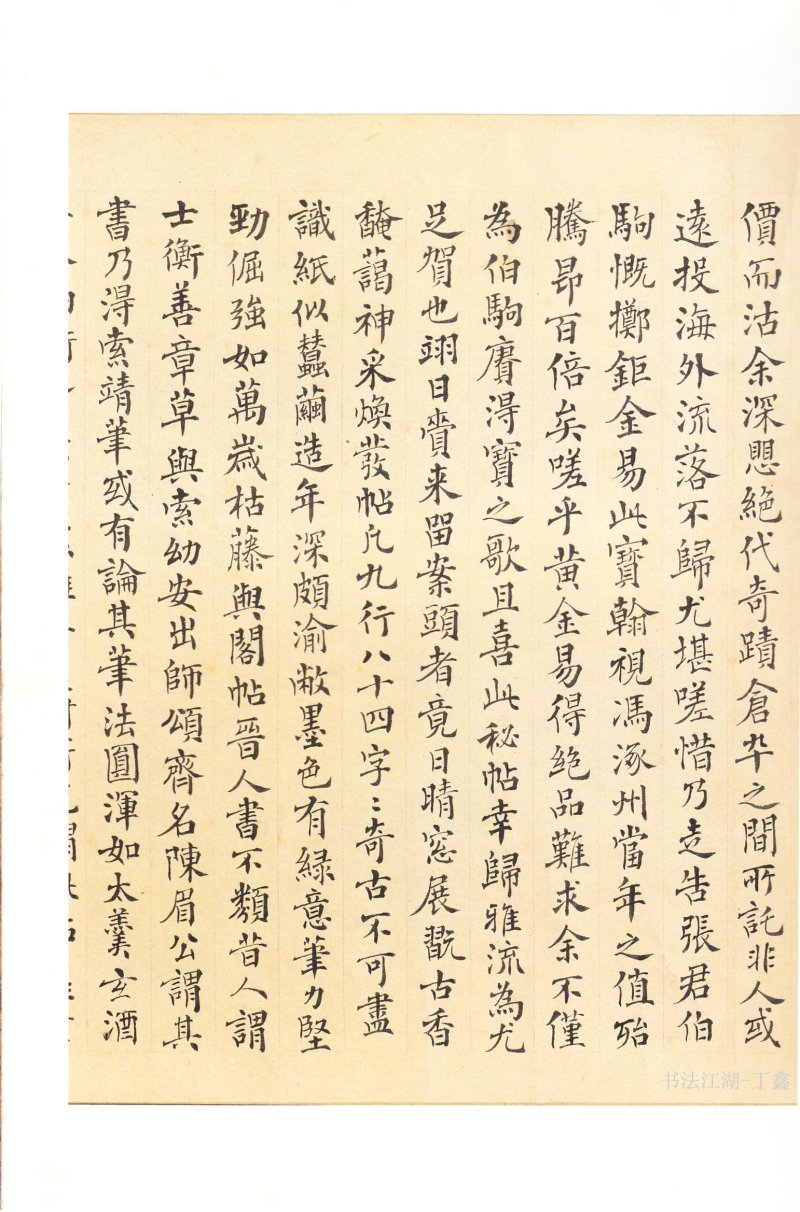 價而沽余深思絕代奇蹟倉卒之間所託非人或
遠投海外流落不歸尤堪嗟惜乃走告張君伯
駒慨擲鉅金易此寶翰視馮涿州當年之值殆
騰昂百倍矣嗟乎黃金易得絕品難求余不僅
為伯駒賡得寶之歌且喜此秘帖幸歸雅流為尤
足賀也翊日賷来留案頭者竟日晴窓展翫古香
馣藹神采煥發帖凡九行八十四字〻奇古不可盡
識紙似蠶繭造年深頗渝敝墨色有緑意筆力堅
勁倔強如萬嵗枯藤與閣帖晉人書不類昔人謂
士衡善章草與索幼安出師頌齊名陳眉公謂其
書乃得索靖筆或有論其筆法圓渾如太羹玄酒
书法江湖-丁鑫